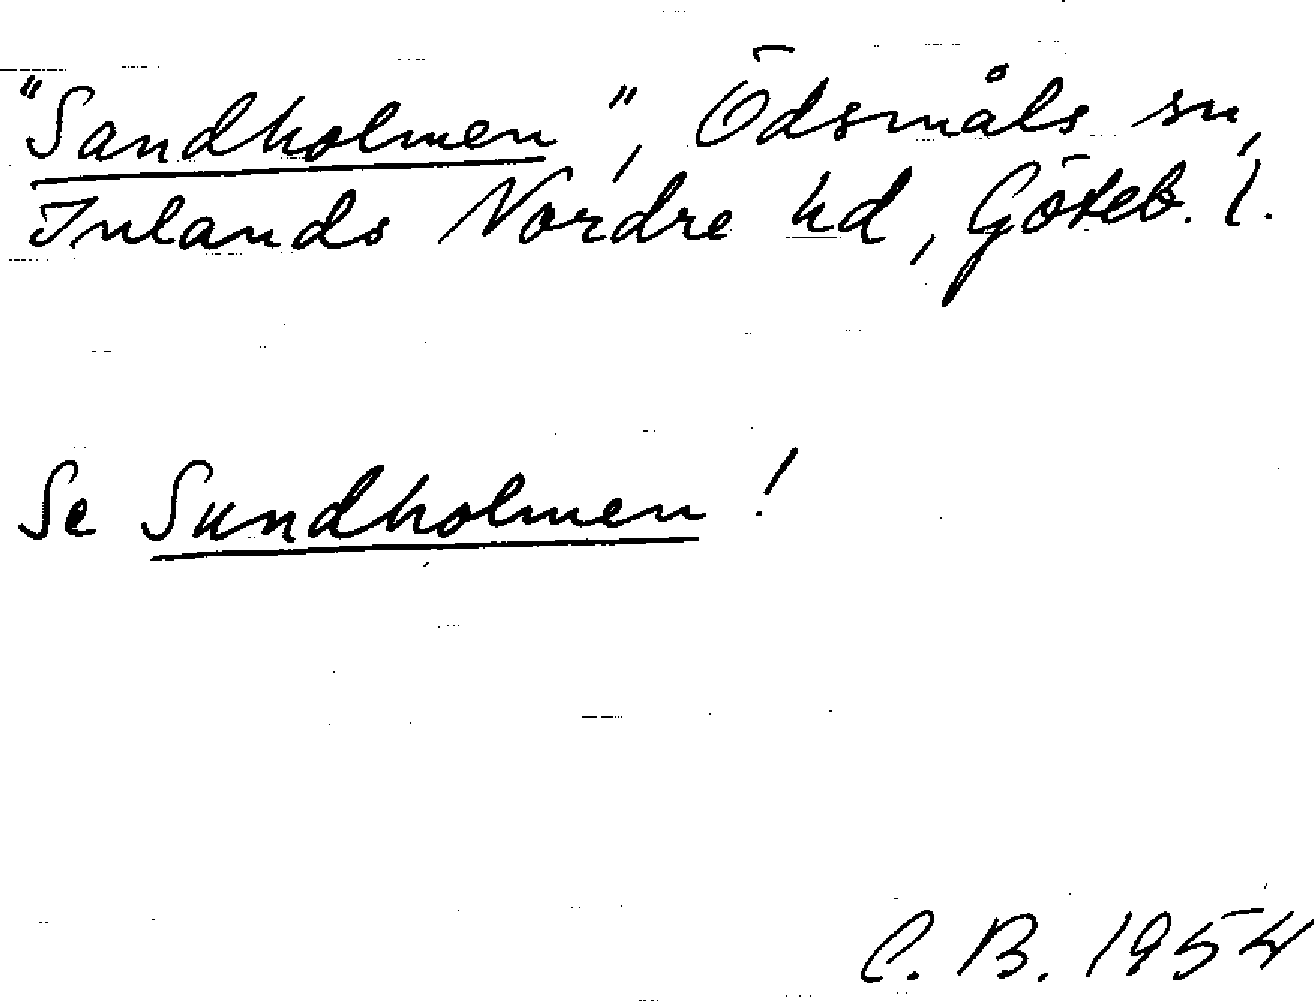 "Sandholmen", Ödsmåls sn,
Inlands Nordre hd, Göteb. l.
Se Sundholmen!
C. B. 1954